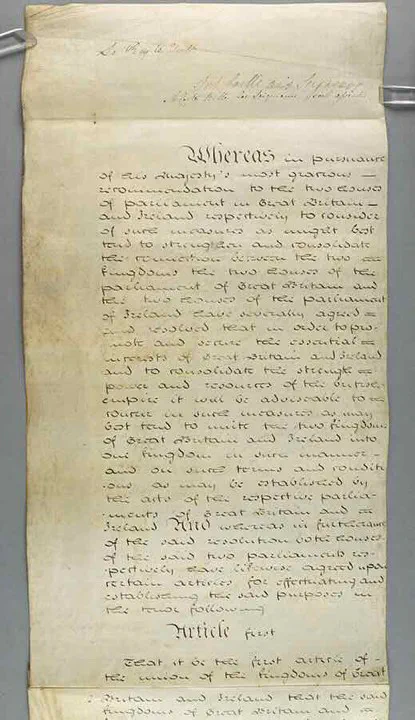 Le Roy le Veult
Soit baillé aux Seigneurs
A cette Bille les Seigneurs sont assentus
Whereas in pursuance
of his Majesty's most gracious —
recommendation to the two houses
of parliament in Great Britain —
and Ireland respectively to consider
of such measures as might best
tend to strengthen and consolidate
the connection between the two —
kingdoms the two houses of the
parliament of Great Britain and
the two houses of the parliament
of Ireland have severally agreed —
and resolved that in order to pro-
mote and secure the essential —
interests of Great Britain and Ireland
and to consolidate the strength —
power and resources of the british
empire it will be adviseable to —
concur in such measures as may
best tend to unite the two kingdoms
of Great Britain and Ireland into
one kingdom in such manner —
and on such terms and conditi-
-ons as may be established by
the acts of the respective parlia-
-ments of Great Britain and —
Ireland And whereas in furtherance
of the said resolution both houses
of the said two parliaments res-
-pectively have likewise agreed upon
certain articles for effectuating and
establishing the said purposes in
the tenor following
Article first
That it be the first article of —
the union of the kingdoms of Great
Britain and Ireland that the said
kingdoms of Great Britain and —